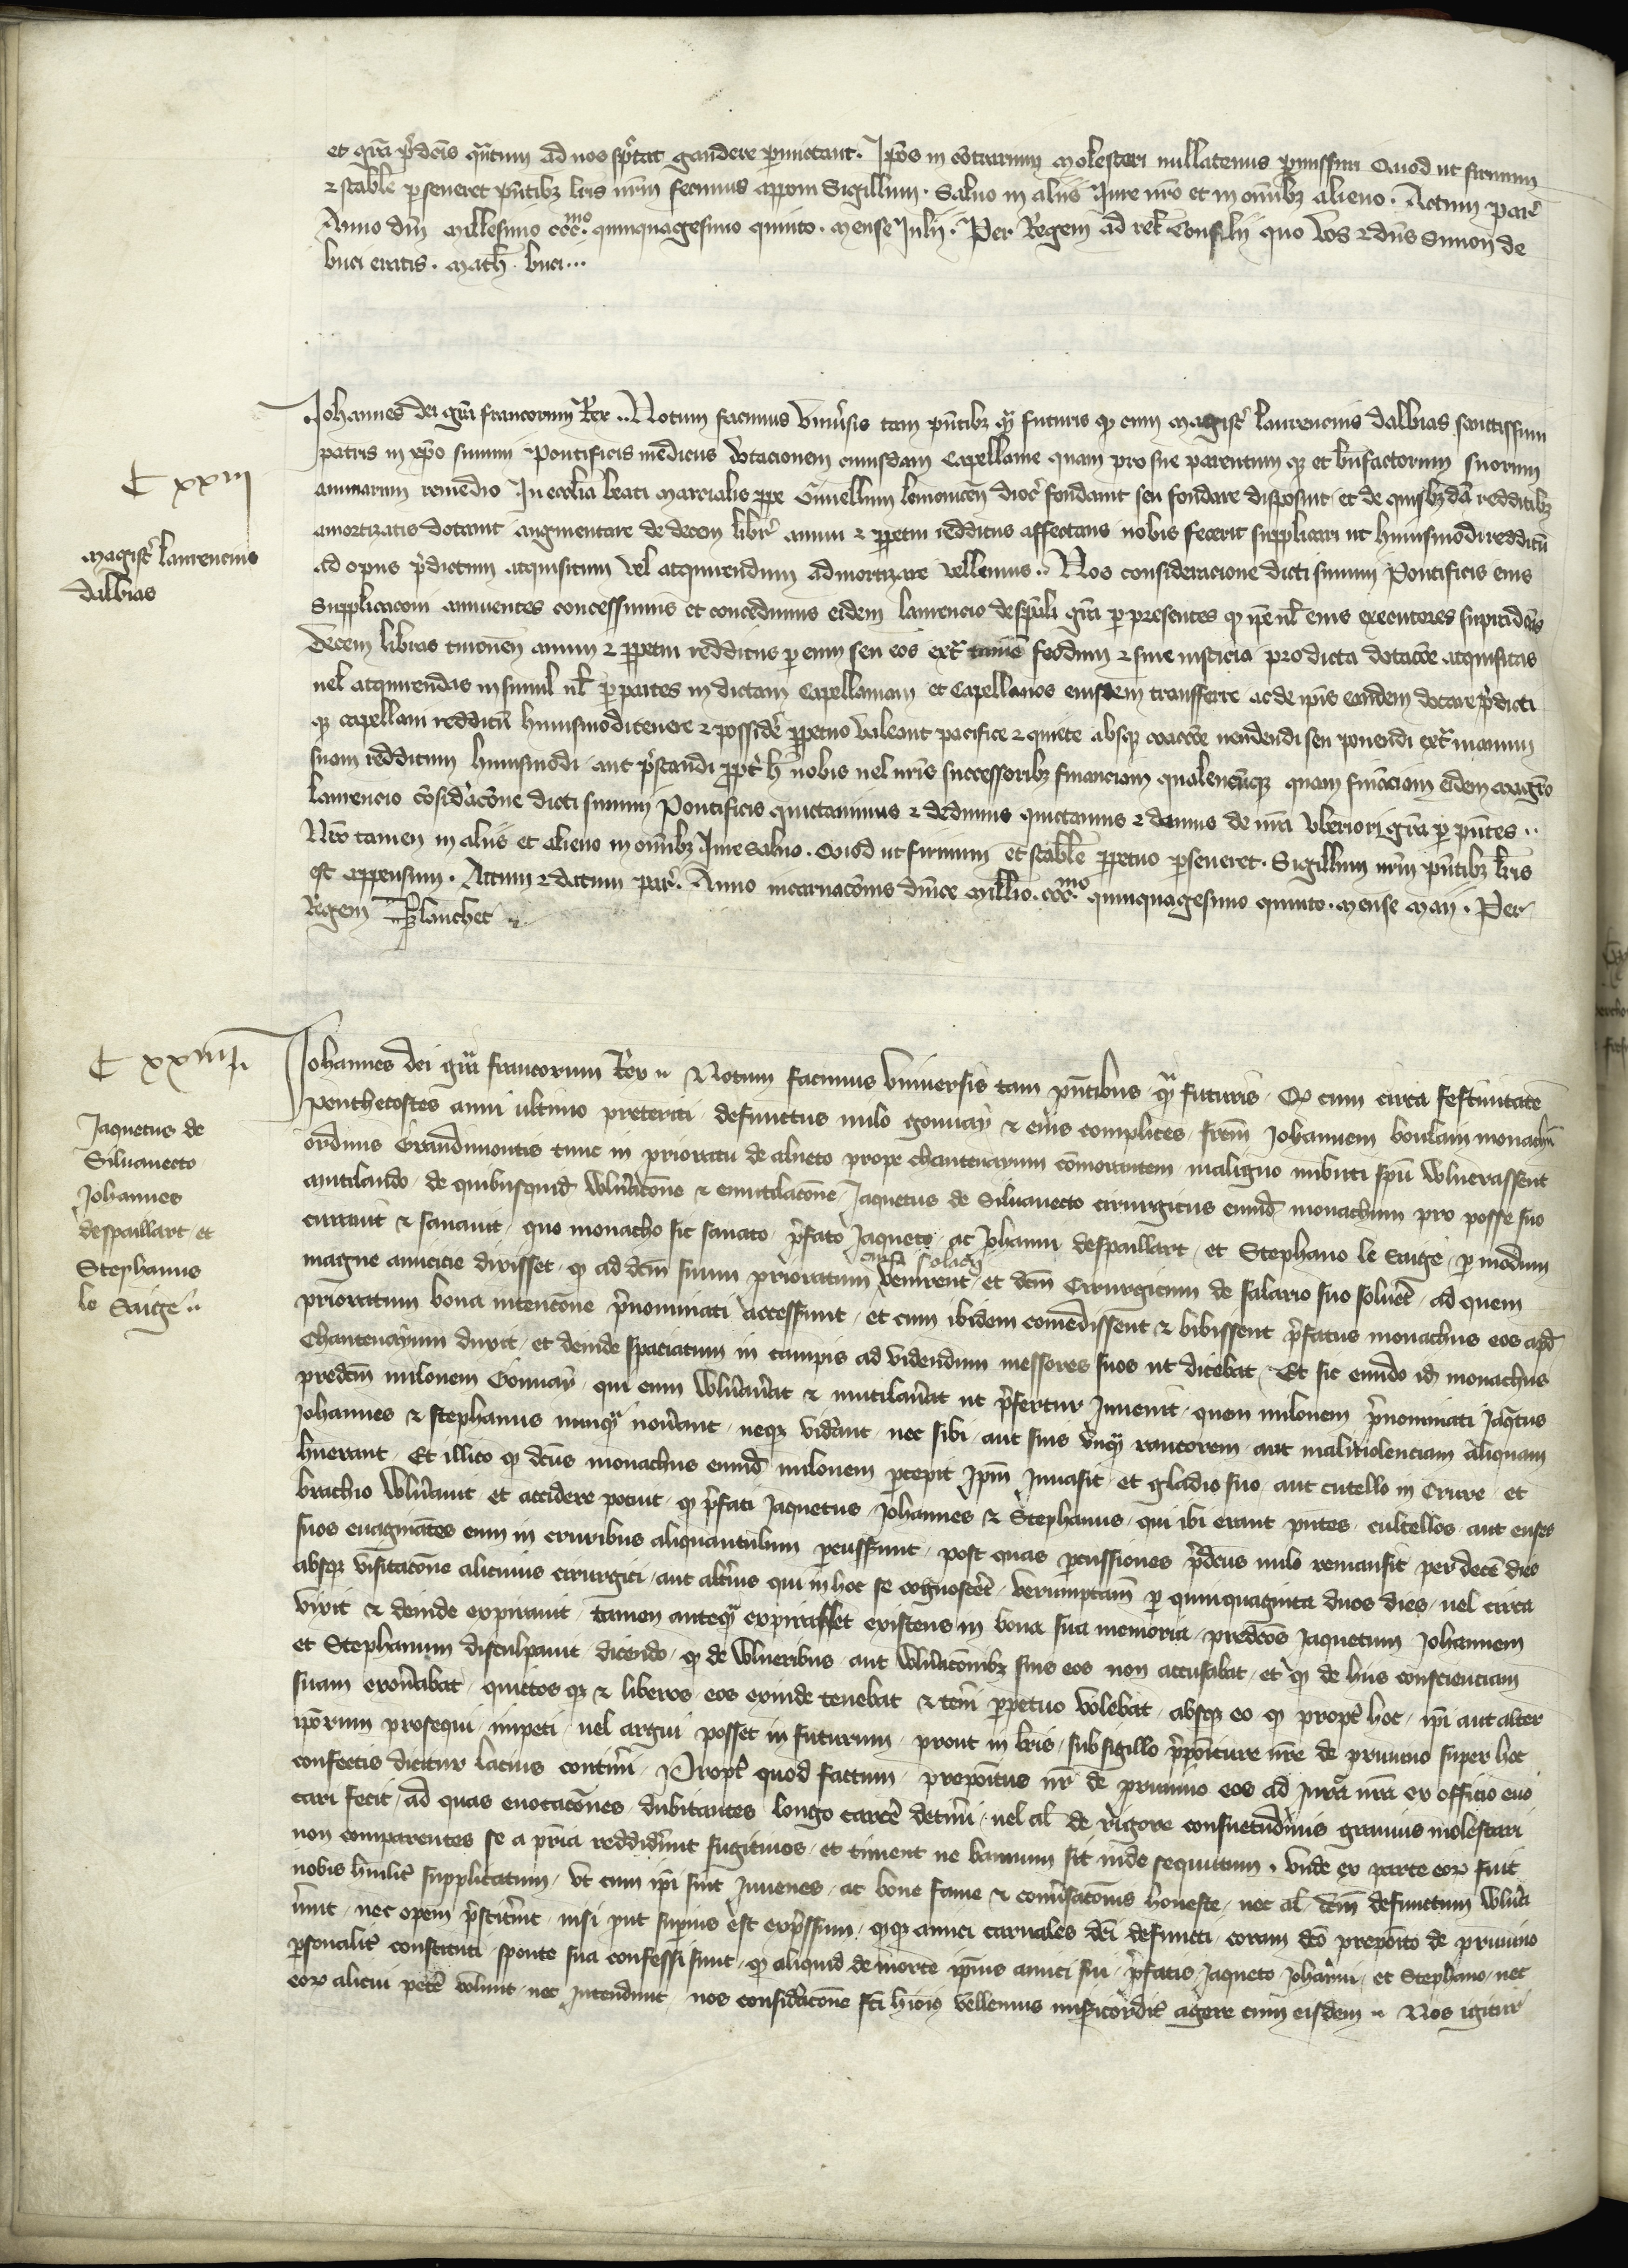 et grā p̄dcīs qūtum ad nos sp̄ctat gaudere p̄mictant. Ip̄os in cōtrarium molestari nullatenus p̄missuri Quod ut firmum
⁊ stabīle p̄seueret p̄ntibꝫ lrīs nrm̄ fecimus apponi Sigillum. Saluo in aliis Jure nrō et in om̄ibꝫ alieno. Actum par̄
Anno dn̄i millesimo ccc.mo quinquagesimo quinto. mense Julij. Per Regem ad rel̄ Consilij quo Vos ⁊ dn̄s Simon de
buci eratis. Math. buci...
C xxiii
Magist̄ laurencius
dalbias
Johannes dei grā francorum Rex.. Notum facimus Vniv̄sis tam p̄ntibꝫ qͣ futuris ꝙ cum magist̄ laurencius dalbias sanctissimi
patris in xp̄o summi Pontificis medicus dotacionem cuiusdam Capellanie quam pro sue parentum qꝫ et bn̄factorum suorum
animarum remedio In eccl̄ia beati marcialis ꝓpe Gimellum lemouicen̄ dioc̄ fondauit seu fondare disposuit et de quibꝫdā redditibꝫ
amortizatis dotauit augmentare de decem libr̄ annui ⁊ ꝑpetui redditus affectans nobis fecerit supplicari ut huiusmodi redditū
ad opus p̄dictum acquisitum vel acquirendum admortizare vellemus.. Nos consideracione dicti summi Pontificis eius
Supplicacōni annuentes concessimus et concedimus eidem laurencio de sp̄ali grā ꝑ presentes ꝙ ip̄e ul̄ eius executores
decem libras turonen̄ annui ⁊ ꝑpetui redditus ꝑ eum seu eos ext̄ tamē feodum ⁊ sine iusticia pro dicta dotacōe acquisitas
uel acquirendas insimul ul̄ ꝑ partes in dictam Capellaniam et Capellanos eiusdem transferre ac de ip̄is eandem dotare p̄dicti
qꝫ capellani redditū huiusmodi tenere ⁊ possidē ꝑpetuo valeant pacifice ⁊ quiete absqꝫ coactōe uendendi seu ponendi ext̄ manum
suam redditum huiusmodi aut p̄standi ꝓpt̄ h̄ nobis uel nrīs successoribꝫ financiam qualencūqꝫ quam finācīam eidem magr̄o
laurencio cōsid̄acōne dicti summi Pontificis quictauimus ⁊ dedimus quictamus ⁊ damus de nrā vberiori grā ꝑ p̄ntes..
Nrō tamen in aliis et alieno in om̄ibꝫ Jure saluo. Quod ut firmum et stabīle ꝑpetuo ꝑseueret. Sigillum nrm̄ p̄ntibꝫ lrīs
est appensum. Actum ⁊ datum par̄. Anno incarnacōnis dn̄ice Millīo. ccc.mo quinquagesimo quinto. mense maij. Per
Regem Blanchet
C xxiiii
Jaquetus de
Siluanecto
Johannes
despaillart et
Stephanus
le Saige..
Johannes dei grā francorum Rex.. Notum facimus Vniuersis tam p̄ntibus qͣ futuris. Qꝫ cum circa festiuitatē
Penthecostes anni ultimo preteriti defunctus milo gonuay ⁊ eius complices frēm Johannem boulain monachū
ordinis Grandimontis tunc in prioratu de alneto prope Chantenayum cōmorantem maligno imbuti spū wlnerassent
mutilando de quibusquid̄ wln̄acōne ⁊ emutilacōne Jaquetus de Siluanecto cirurgicus eumd̄ monachum pro posse suo
curauit ⁊ sanauit quo monacho sic sanato p̄fato Jaqueto ac Johanni despaillart et Stephano le Saige ꝑ modum
magne amicicie dixisset ꝙ ad dcm̄ suum prioratum causa solacij venirent et dcm̄ Cirurgicum de salario suo soluet̄ ad quem
prioratum bona intencōne p̄nominati accesserunt et cum ibidem comedissent ⁊ bibissent p̄fatus monachus eos apd̄
Chantenayum duxit et deinde spaciatum in campis ad videndum messores suos ut dicebat Et sic eundo id̄ monachus
predcm̄ milonem Gonuay qui eum wln̄au̅at ⁊ mutilau̅at ut p̄fertur Inuenit quem milonem p̄nominati Jaq̄tus
Johannes ⁊ stephanus nunqͣ nou̅ant neqꝫ vid̄ant nec sibi aut suis vnqͣ rancorem aut maliuolenciam aliquam
huerant Et illico ꝙ dcūs monachus eumd̄ milonem ꝑcepit Ip̄m Inuasit et gladio suo aut cutello in Crure et
brachio wln̄auit et accidere potuit ꝙ p̄fati Jaquetus Johannes ⁊ Stephanus qui ibi erant p̄ntes cultellos aut enses
suos euaginātes eum in cruribus aliquantulum ꝑcusserunt post quas ꝑcussiones p̄dcūs milo remansit per decē dies
absqꝫ visitacōne alicuius cirurgici aut alt̄ius qui in hoc se cognoscet̄ verumptam̄ ꝑ quinquaginta duos dies uel circa
vixit ⁊ deinde expirauit tamen anteqͣ expirasset existens in bona sua memoria predcōs Jaquetum Johannem
et Stephanum disculpauit dicendo ꝙ de wlneribus aut wln̄acōnibꝫ suis eos non accusabat et ꝙ de hiis conscienciam
suam exon̄abat quietos qꝫ ⁊ liberos eos exinde tenebat ⁊ ten̄i ꝑpetuo volebat absqꝫ eo ꝙ propt̄ hoc ip̄i aut alter
ip̄orum prosequi impeti uel argui posset in futurum prout in lrīs sub sigillo p̄pōiture nrē de pruuino super hoc
confectis dicitur lacius contin̄i Propt̄ quod factum prepōitus nr̄ de pruuino eos ad Jura nrā ex officio euo
cari fecit ad quas euocacōnes dubitantes longo carcē detin̄i uel al̄ de rigore consuetudinis grauius molestari
non comparentes se a p̄ria reddid̄unt fugitiuos et timent ne bannum sit inde sequutum. Vnde ex parte eoꝝ fuit
nobis hu̅ilit̄ supplicatum Vt cum ip̄i sint Juuenes ac bone fame ⁊ conu̅sacōnis honeste nec al̄ dcm̄ defunctum wln̄a
u̅int nec opem p̄stit̄int nisi put sup̄ius est exp̄ssum qꝫ amici carnales dcī defuncti coram dcō preposito de pruuino
ꝑsonalit̄ constituti sponte sua confessi sunt ꝙ aliquid de morte ip̄ius amici sui p̄fatis Jaqueto Johanni et Stephano nec
eoꝝ alicui petē volunt nec Intendunt nos consid̄acōne vellemus misericordit̄ agere cum eisdem.. Nos igitur